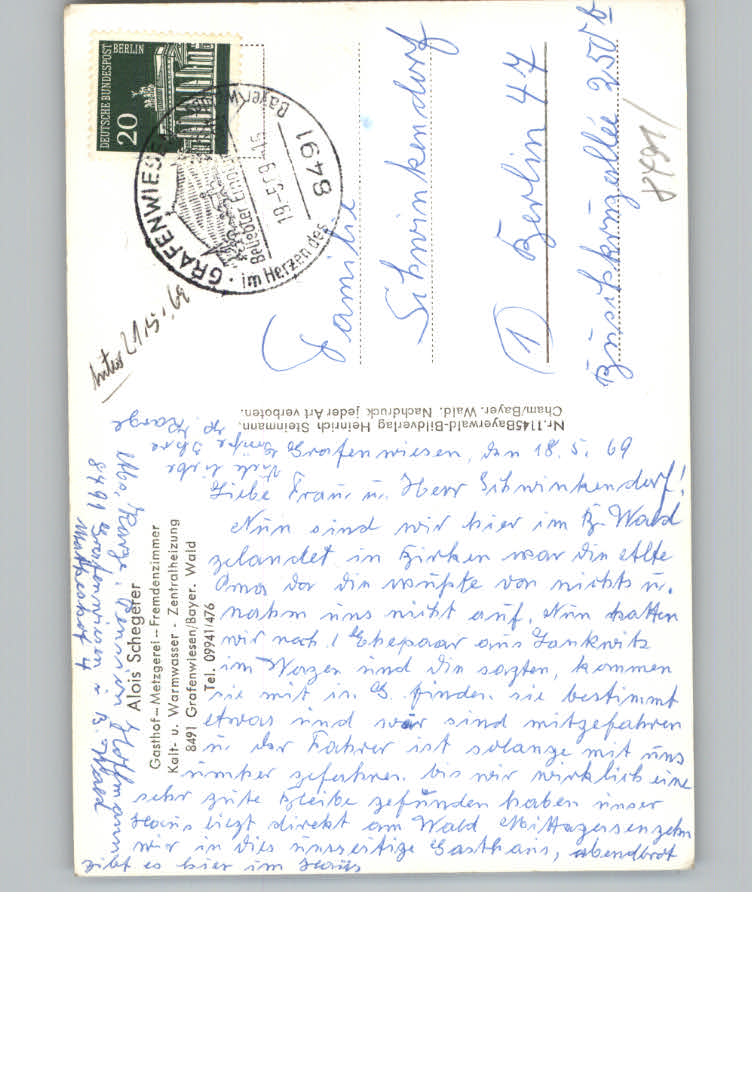 DEUTSCHE BUNDESPOST
BERLIN
20
GRAFENWIESEN
Bayer. Wald
8491
19.-5.69.-15
Beliebter
im Herzen des
21.5.69
8491
Familie
Schwinkendorf
(1) Berlin 47
Buschkrugallee 250 b
Nr. 1145 Bayerwald-Bildverlag Heinrich Steinmann,
Cham/Bayer. Wald. Nachdruck jeder Art verboten.
Alois Schegerer
Gasthof – Metzgerei – Fremdenzimmer
Kalt- u. Warmwasser - Zentralheizung
8491 Grafenwiesen/Bayer. Wald
Tel. 09941/476
Grafenwiesen, den 18. 5. 69
Liebe Frau u. Herr Schwinkendorf!
Nun sind wir hier im B. Wald
gelandet in Birken war die alte
Oma da die wußte von nichts u.
nahm uns nicht auf. Nun hatten
wir noch 1 Ehepaar aus Lankwitz
im Wagen und die sagten, kommen
sie mit in G. finden sie bestimmt
etwas und wir sind mitgefahren
u. der Fahrer ist solange mit uns
umher gefahren bis wir wirklich eine
sehr gute Bleibe gefunden haben unser
Haus liegt direkt am Wald Mittagessen gehn
wir in dies umseitige Gasthaus, abendbrot
gibt es hier im Haus
Viele liebe
Grüße Ihre
Karge
Abs. Karge, Pension
8491 Grafenwiesen i. B. Wald